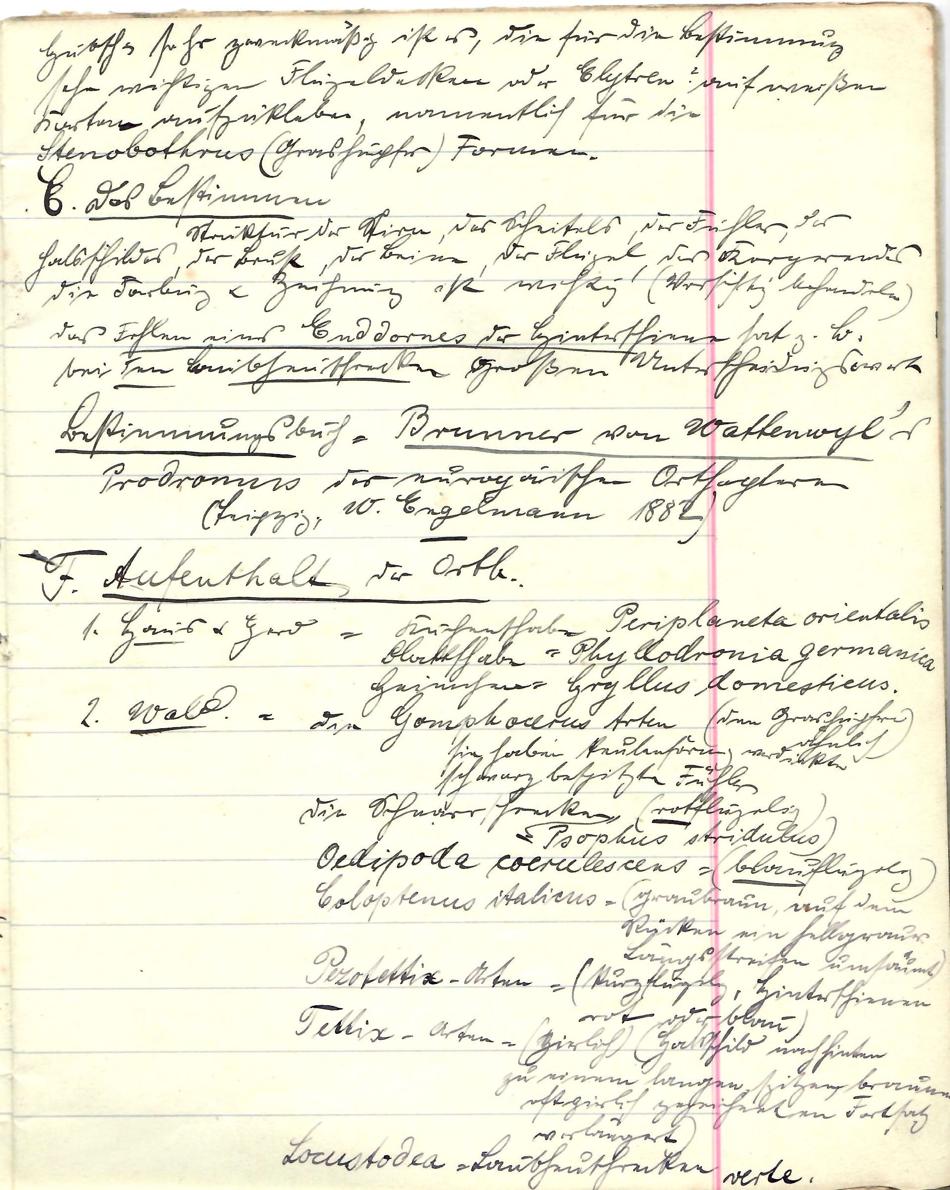 Hübsch & sehr zweckmäßig ist es, die für die Bestimmung
sehr wichtigen Flügeldecken oder Elytren auf weißen
Karton aufzukleben, namentlich für die
Stenobothrus (Grashüpfer) Formen.
E. Das Bestimmen
Struktur der Stirn, des Scheitels, der Fühler, des
Halsschildes, der Brust, der Beine, der Flügel, des
die Färbung & Zeichnung ist wichtig (Vorsichtig behandeln)
das Fehlen eines Enddornes der Hinterschiene hat z. B.
bei den Laubheuschrecken großen Unterscheidungswert
Bestimmungsbuch = Brunner von Wattenwyl's
Prodromus der europäischen Orthopteren
(Leipzig, W. Engelmann 1882)
F. Aufenthalt der Orth.
1. Haus & Herd = Küchenschabe Periplaneta orientalis
Blattschabe = Phyllodronia germanica
Heimchen = Gryllus domesticus.
2. Wald. = den Gomphocerus Arten (den Grashüpfern ähnlich)
sie haben keulenförmig verdickte
schwarz bespitzte Fühler
die Schnarrheuschrecken (rotflügelig)
= Psophus stridulus)
Oedipoda coerulescens = (blauflügelig)
Coloptenus italicus = (graubraun, auf dem
Rücken ein hellgrauer
Längsstreifen umsäumt)
Pezotettix - Arten = (kurzflügelig, Hinterschienen
rot oder blau)
Tettix - Arten = (zierlich) (Halsschild nach hinten
zu einem langen, spitzen, braunen
oft zierlich gezeichneten Fortsatz
verlängert)
Locustodea = Laubheuschrecken verte.